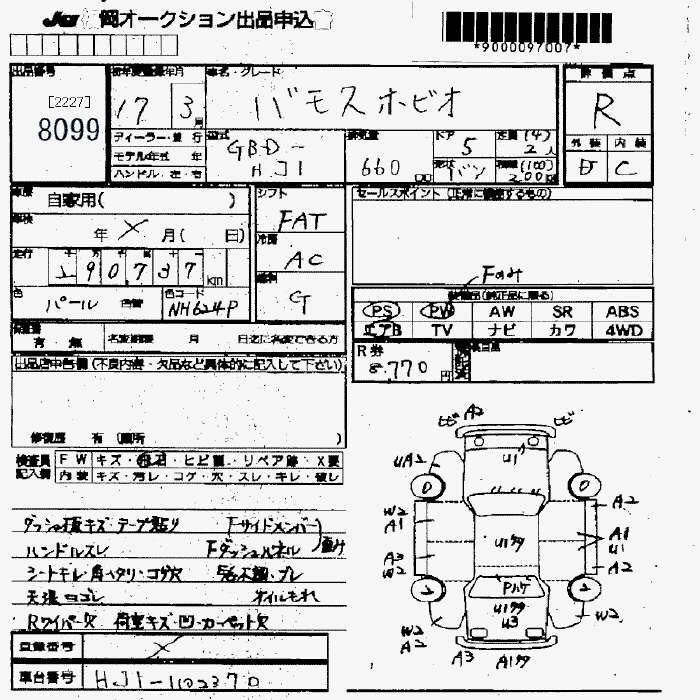 JU 岡オークション出品申込
*9000097007*
出品番号
[2227]
8099
初年度登録年月
17 3月
車名・グレード
バモスホビオ
評価点
R
外装 内装
E C
ディーラー・並行
モデル年式 年
ハンドル・左・右
型式
GBD-
HJ1
排気量
660
ドア
5
定員(4)
2人
形状
バン
積載(100)
200
車歴
自家用( )
車検
年 X 月( 日)
走行
190,737km
色
パール 色替
色コード
NH624P
シフト
FAT
冷房
AC
燃料
G
セールスポイント(正常に機能するもの)
Fのみ
装備品(純正品に限る)
PS PW AW SR ABS
エアB TV ナビ カワ 4WD
有 無 名変期限 月 日迄に名変できる方
R券
8,770円
出品店申告欄(不良内容・欠品など具体的に記入して下さい)
修復歴 有(箇所 )
検査員記入欄
FW キズ・飛石・ヒビ割・リペア跡・X要
内装 キズ・汚レ・コゲ・穴・スレ・キレ・破レ
ダッシュ板キズ テープ貼り Fサイドメンバー
ハンドルスレ Fダッシュパネル
シートキレ・角ヘタリ・コゲ穴
天張ヨゴレ オイルもれ
Rワイパー欠 荷室キズ・凹・カーペット欠
登録番号 X
車台番号 HJ1-1102370
A2
ビ ビ
UA2 U1
0 0
W2 A2
A1 A1
U1
A3 A2
W2
Pハゲ
U3
W2 W2
A2
A3